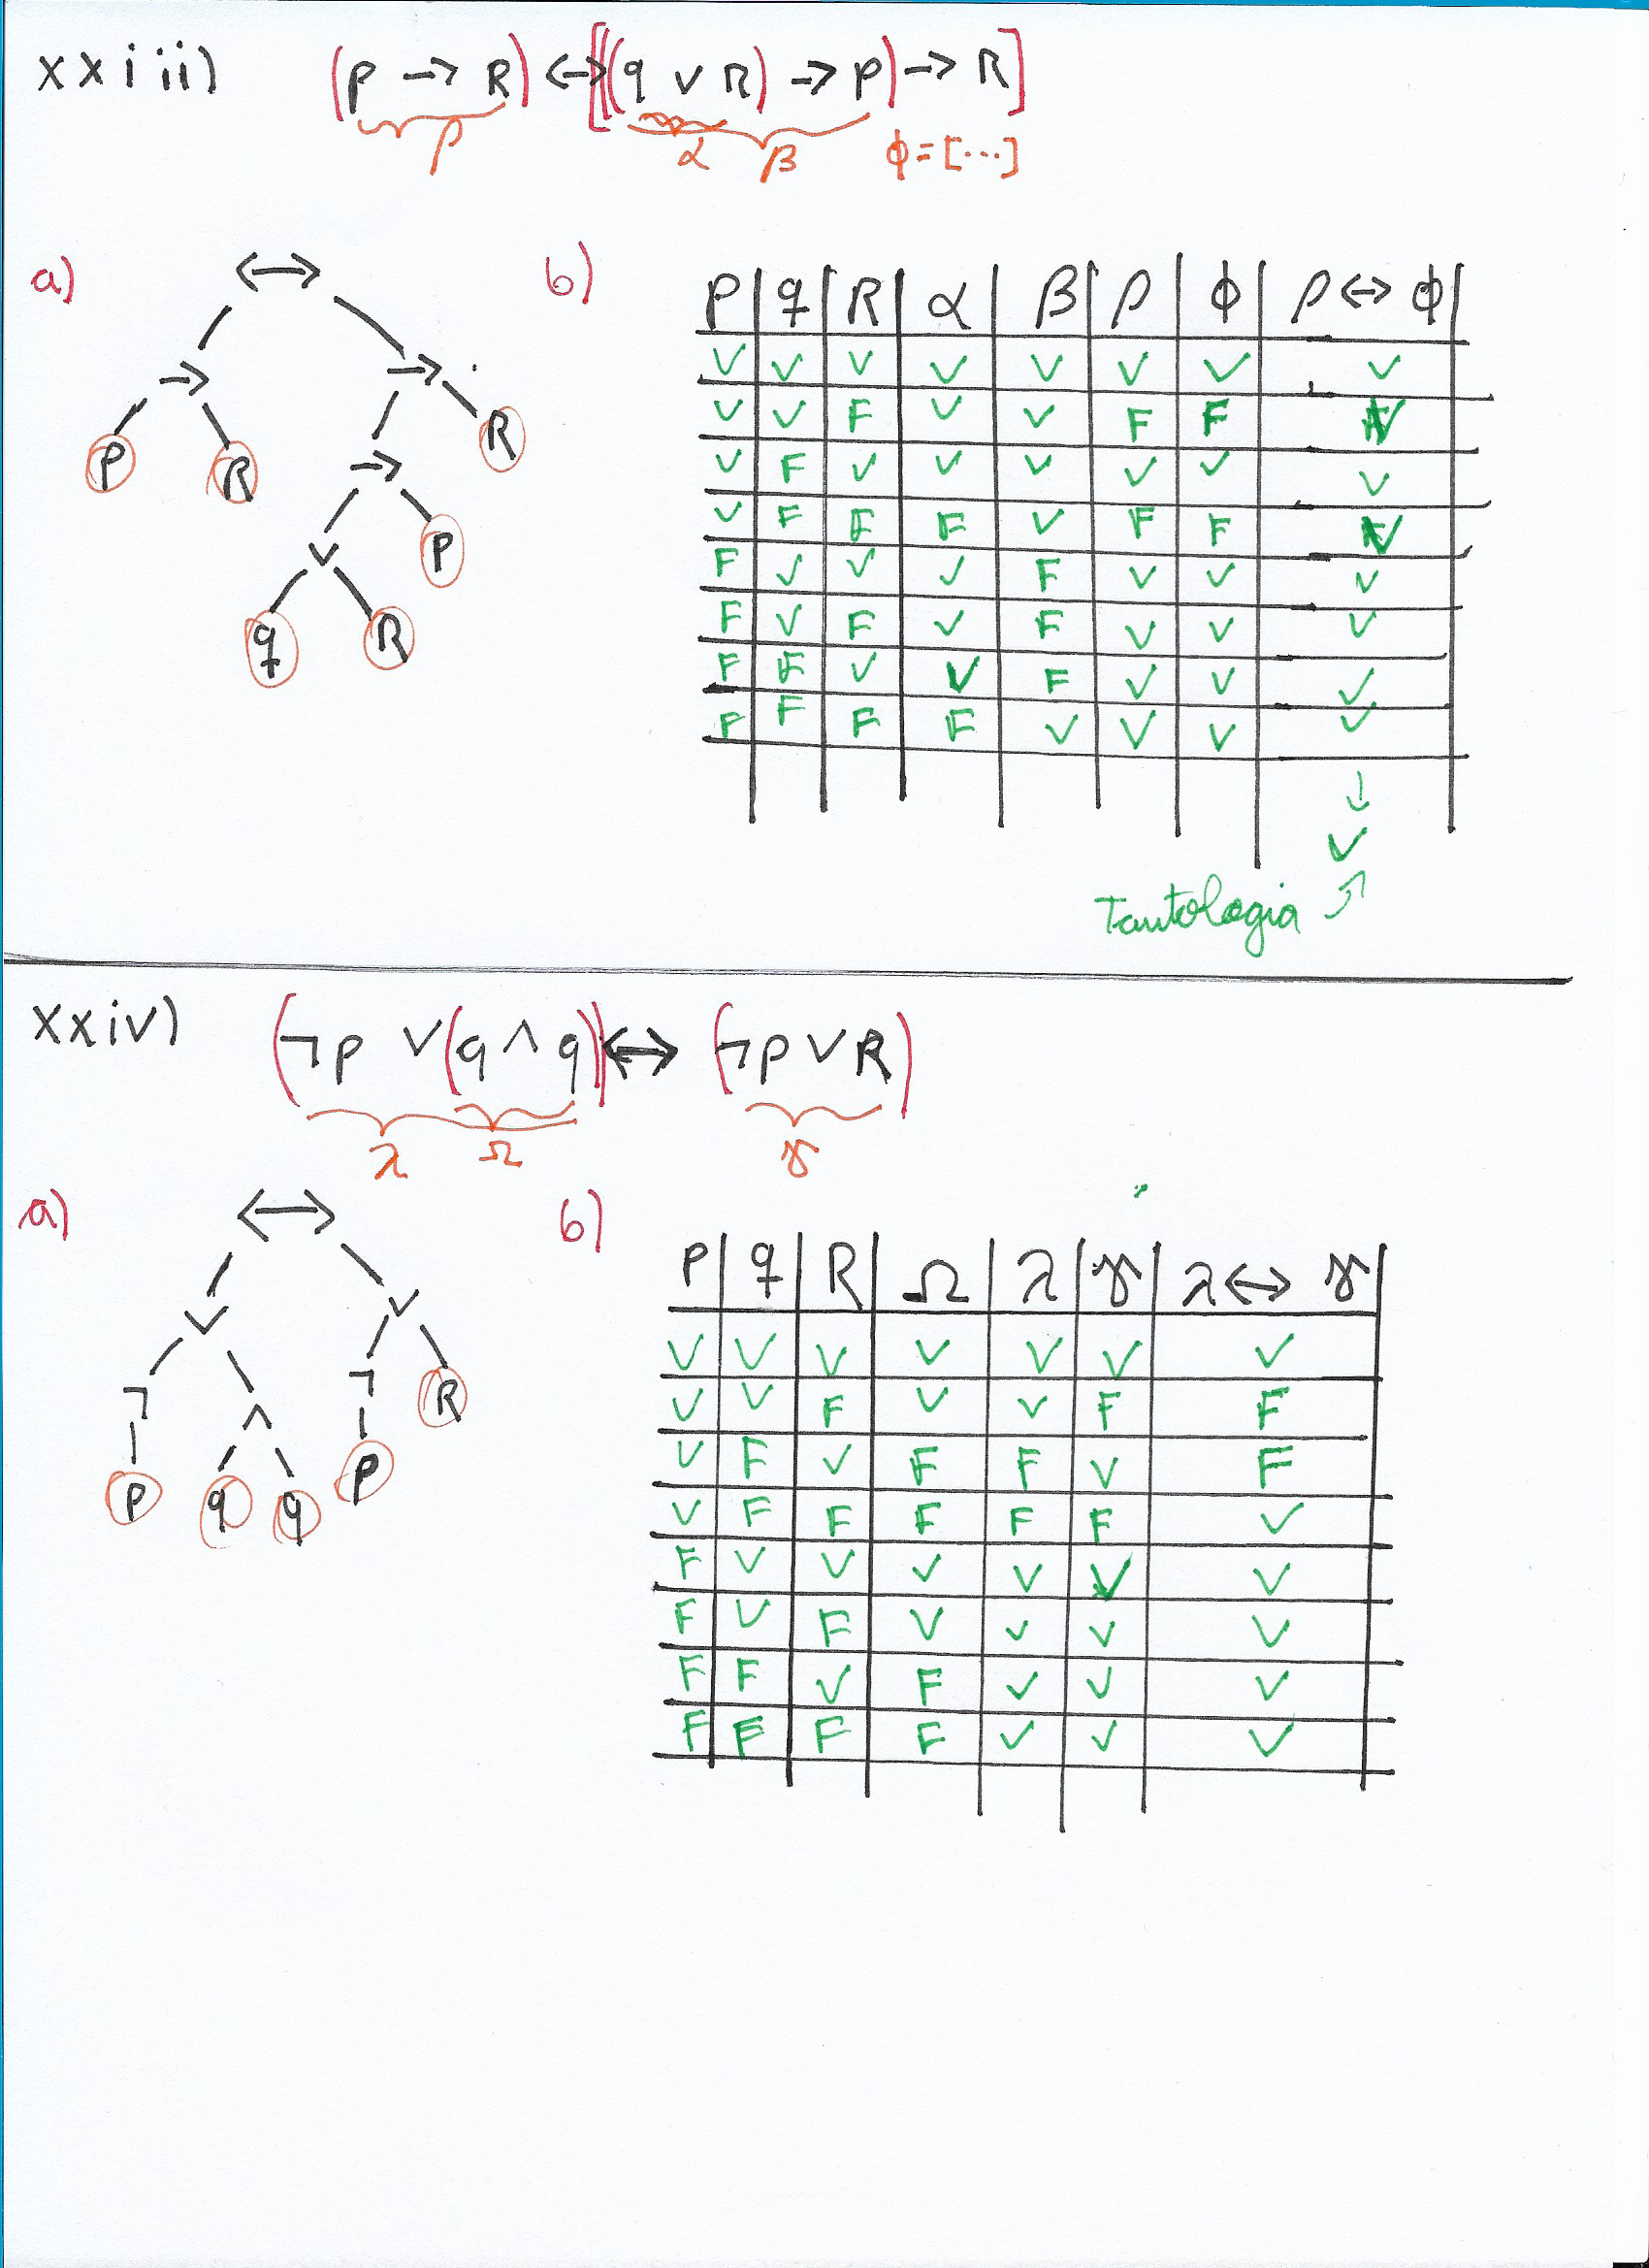 xxiii) (p → R) ↔ [((q ∨ R) → p) → R]
ρ α β ϕ = [...]
a) ↔
→ →
P R → R
∨ P
q R
b)
P q R α β ρ ϕ ρ ↔ ϕ
V V V V V V V V
V V F V V F F V
V F V V V V V V
V F F F V F F V
F V V V F V V V
F V F V F V V V
F F V V F V V V
F F F F V V V V
↓
V
Tautologia ↗
xxiv) (¬p ∨ (q ∧ q)) ↔ (¬p ∨ R)
λ Ω γ
a) ↔
∨ ∨
¬ ∧ ¬ R
P q q P
b)
P q R Ω λ γ λ ↔ γ
V V V V V V V
V V F V V F F
V F V F F V F
V F F F F F V
F V V V V V V
F V F V V V V
F F V F V V V
F F F F V V V